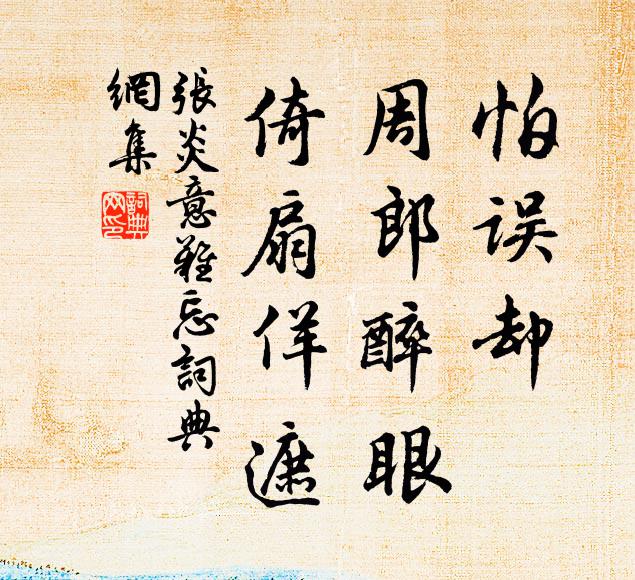 怕误却
周郎醉眼
倚扇佯遮
張炎意難忘詞典
網集
詞典
网印